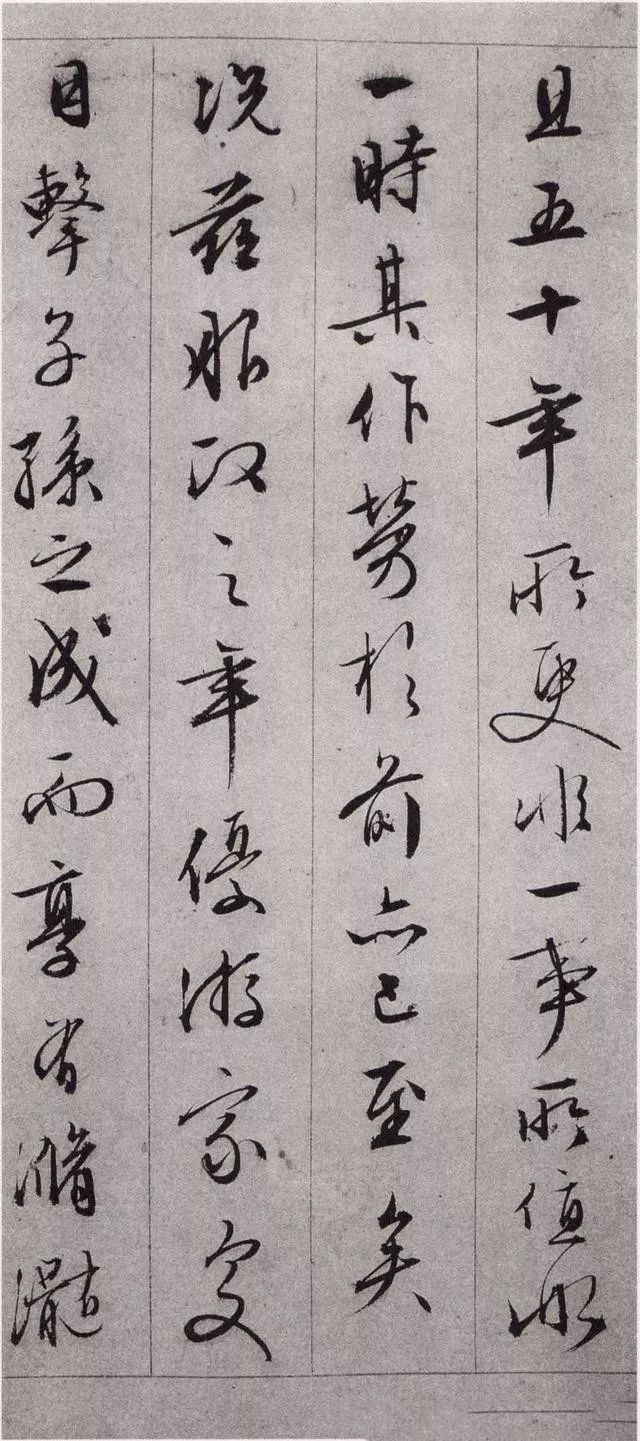 且五十年所更非一事所值非
一時其作勞於前亦已至矣
況茲服政之年優游家處
目擊子孫之成而享有滫瀡